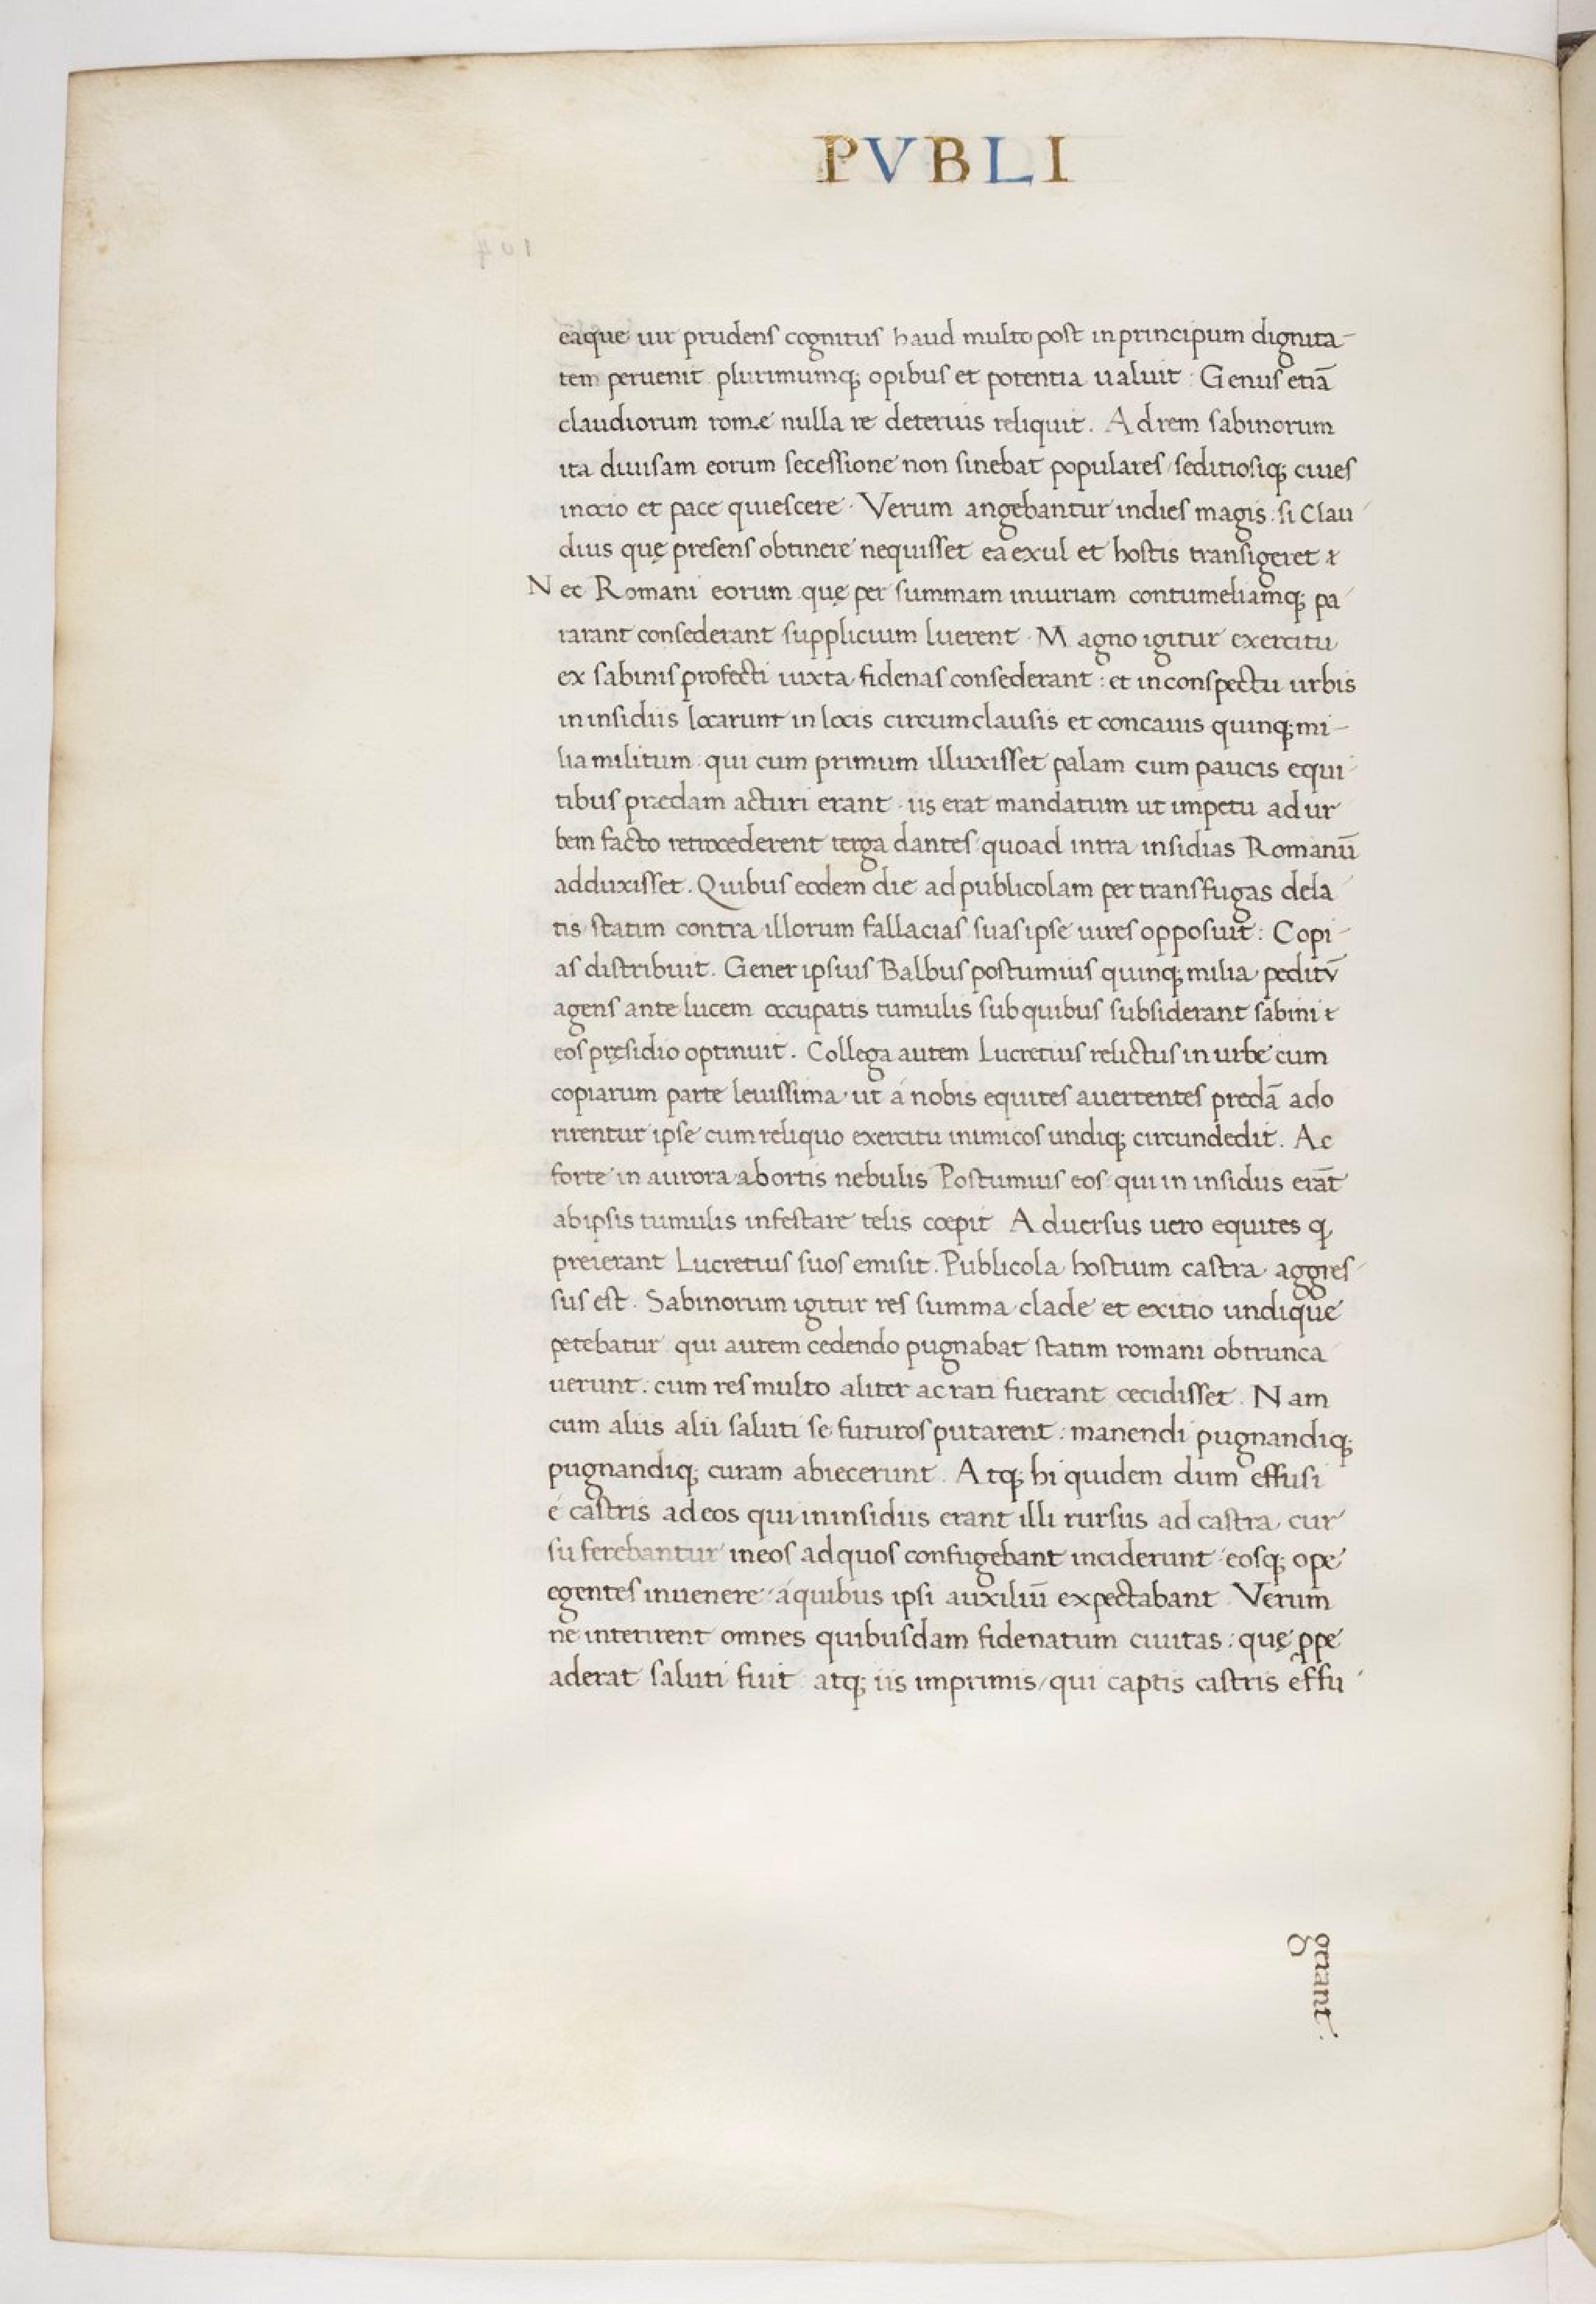 PVBLI
104
eaque uir prudens cognitus haud multo post in principum dignita-
tem peruenit plurimumq; opibus et potentia ualuit : Genus etiā
claudiorum romæ nulla re deterius reliquit. Ad rem sabinorum
ita diuisam eorum secessione non sinebat populares / seditiosiq; ciues
in ocio et pace quiescere · Verum angebantur indies magis · si Clau
dius quę presens obtinere nequisset ea exul et hostis transigeret &
Nec Romani eorum quę per summam iniuriam contumeliamq; pa
rarant consederant supplicium luerent · Magno igitur exercitu
ex sabinis profecti iuxta fidenas consederant : et in conspectu urbis
in insidiis locarunt in locis circumclausis et concauis quinq; mi-
lia militum · qui cum primum illuxisset palam cum paucis equi
tibus prædam acturi erant · iis erat mandatum ut impetu ad ur
bem facto retrocederent terga dantes · quoad intra insidias Romanū
adduxisset. Quibus eodem die ad publicolam per transfugas dela
tis / statim contra illorum fallacias suas ipse uires opposuit : Copi-
as distribuit. Gener ipsius Balbus postumius quinq; milia peditū
agens ante lucem occupatis tumulis sub quibus subsiderant sabini &
eos pręsidio optinuit. Collega autem Lucretius relictus in urbe cum
copiarum parte leuissima · ut á nobis equites auertentes predā ado
rirentur ipse cum reliquo exercitu inimicos undiq; circundedit. Ac
forte in aurora abortis nebulis Postumius eos qui in insidiis erāt
ab ipsis tumulis infestare telis coepit Aduersus uero equites q
preierant Lucretius suos emisit. Publicola hostium castra aggres
sus est. Sabinorum igitur res summa clade et exitio undique
petebatur qui autem cedendo pugnabat statim romani obtrunca
uerunt : cum res multo aliter ac rati fuerant cecidisset. Nam
cum aliis alii saluti se futuros putarent : manendi pugnandiq;
pugnandiq; curam abiecerunt. Atq; hi quidem dum effusi
é castris ad eos qui in insidiis erant illi rursus ad castra cur
su ferebantur in eos ad quos confugebant inciderunt · eosq; ope
egentes inuenere · á quibus ipsi auxiliū expectabant · Verum
ne interirent omnes quibusdam fidenatum ciuitas : quę ꝓpe
aderat saluti fuit atq; iis imprimis / qui captis castris effu
geriant.